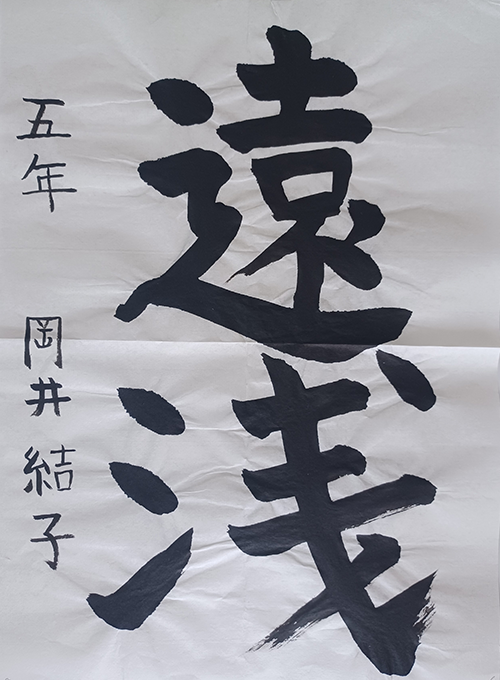 遠浅
五年 岡井結子